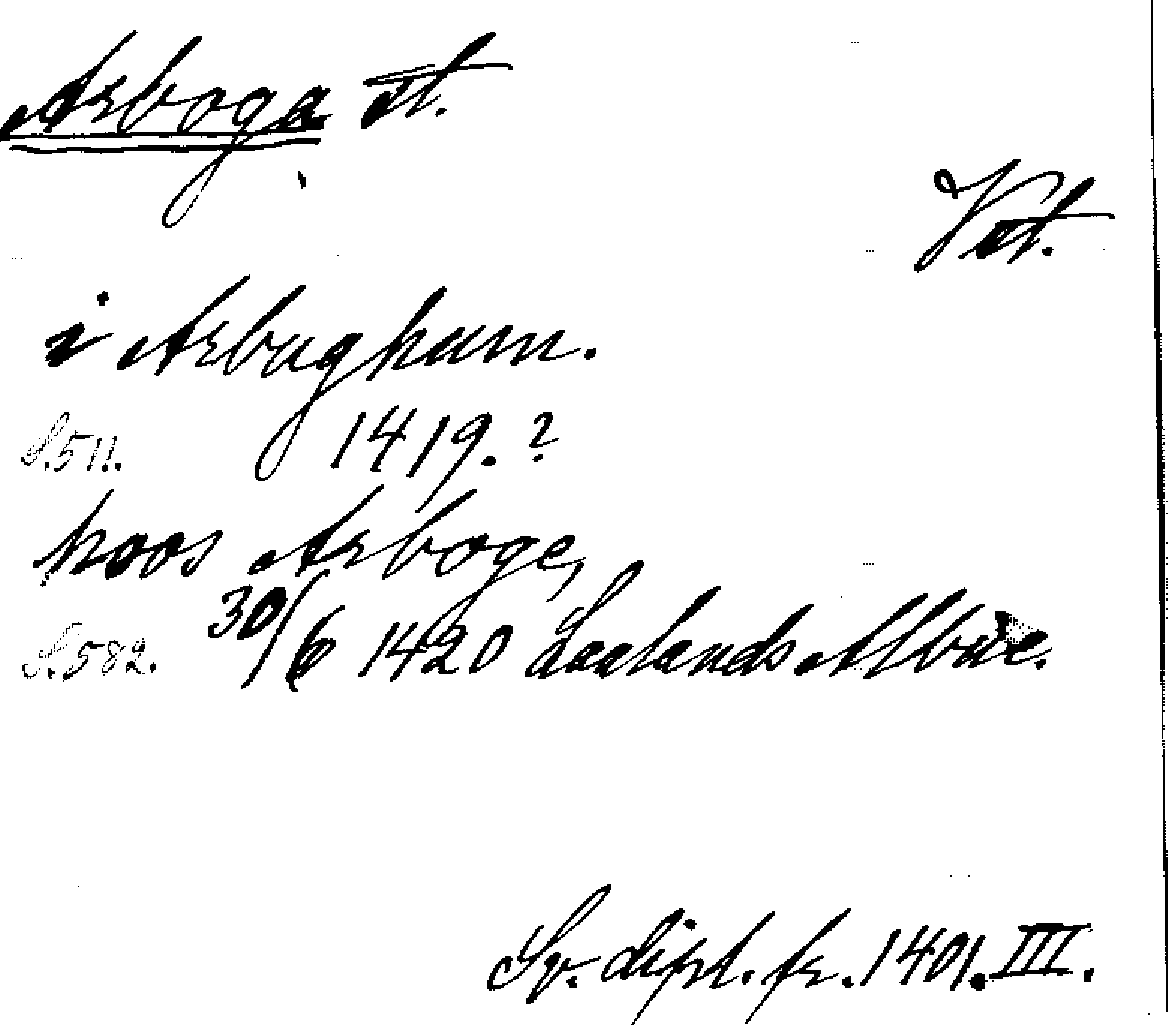 Arboga st.
Vst.
i Arbughum.
S. 511. 1419. ?
hoos Arboge,
S. 582. 30/6 1420 Laalands Albue.
Sv. dipl. fr. 1401. III.